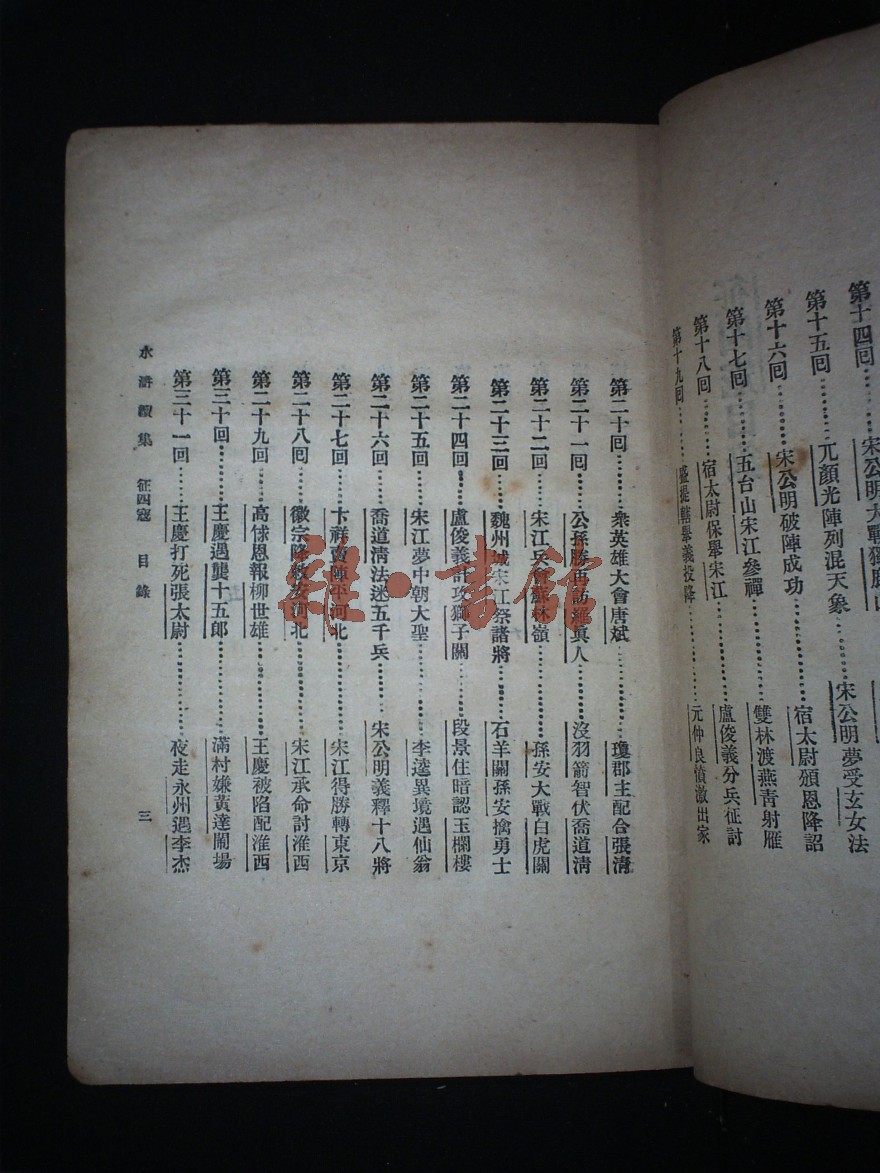 第十四回 宋公明大戰獨鹿山
第十五回 兀顏光陣列混天象 宋公明夢受玄女法
第十六回 宋公明破陣成功 宿太尉頒恩降詔
第十七回 五台山宋江參禪 雙林渡燕青射雁
第十八回 宿太尉保舉宋江 盧俊義分兵征討
第十九回 盛提轄舉義投降 元仲良憤激出家
第二十回 衆英雄大會唐斌 瓊郡主配合張清
第二十一回 公孫勝再訪羅眞人 沒羽箭智伏喬道清
第二十二回 宋江兵會蘇林嶺 孫安大戰白虎關
第二十三回 魏州城宋江祭諸將 石羊關孫安擒勇士
第二十四回 盧俊義計攻獅子關 段景住暗認玉欄樓
第二十五回 宋江夢中朝大聖 李逵異境遇仙翁
第二十六回 喬道清法迷五千兵 宋公明義釋十八將
第二十七回 卞祥賣陣平河北 宋江得勝轉東京
第二十八回 徽宗降敕安河北 宋江承命討淮西
第二十九回 高俅恩報柳世雄 王慶被陷配淮西
第三十回 王慶遇龔十五郎 滿村嫌黃達鬧場
第三十一回 王慶打死張太尉 夜走永州遇李杰
水滸續集 征四寇 目錄 三
雜·書館